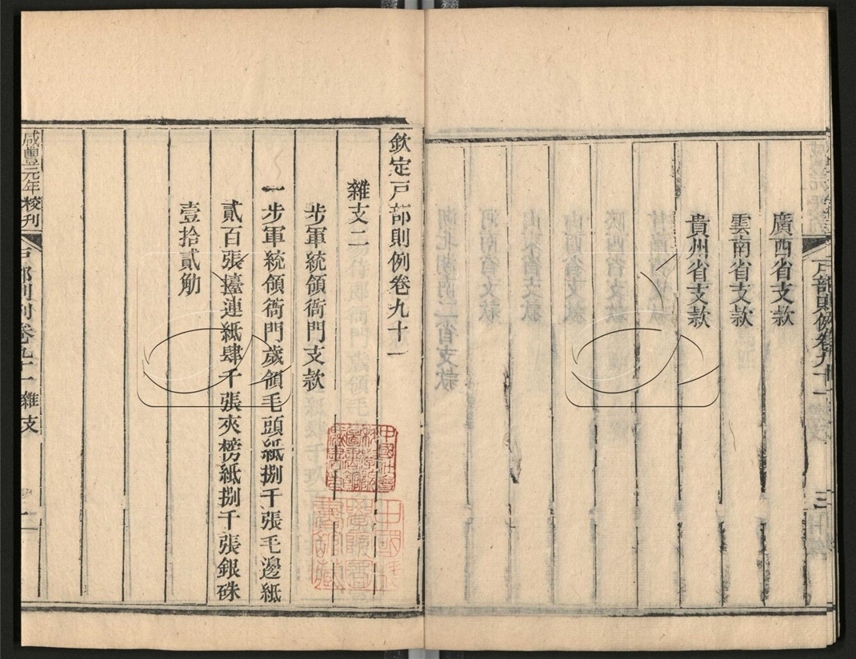 廣西省支款
雲南省支款
貴州省支款
戶部則例卷九十一
欽定戶部則例卷九十一
雜支二
步軍統領衙門支款
一步軍統領衙門歲領毛頭紙捌千張毛邊紙
貳百張擡連紙肆千張夾榜紙捌千張銀硃
壹拾貳觔
咸豐元年校刊
戶部則例卷九十一
雜支